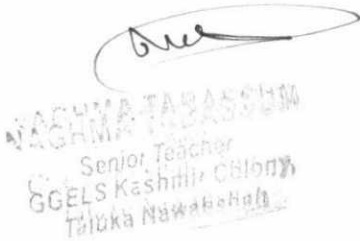 NAGHMA TABASSUM
Senior Teacher
GGELS Kashmir Colony
Taluka Nawabshah